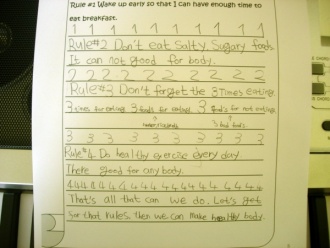 Rule #1 Wake up early so that I can have enough time to
eat breakfast.
1 1 1 1 1 1 1 1 1 1
Rule#2 Don't eat Salty Sugary foods.
It can not good for body.
2 2 2 2 2 2 2 2 2 2 2
Rule#3 Don't forget the 3 Times eating.
3 times for eating. 3 foods for eating. 3 foods for not eating.
3 bad foods.
3 3 3 3 3 3 3 3 3 3
Rule#4. Do healthy exercise every day
There good for any body.
4 4 4 4 4 4 4 4 4 4 4 4 4 4 4
That's all that can we do. Let's get
our that rules. then we can make healthy body.